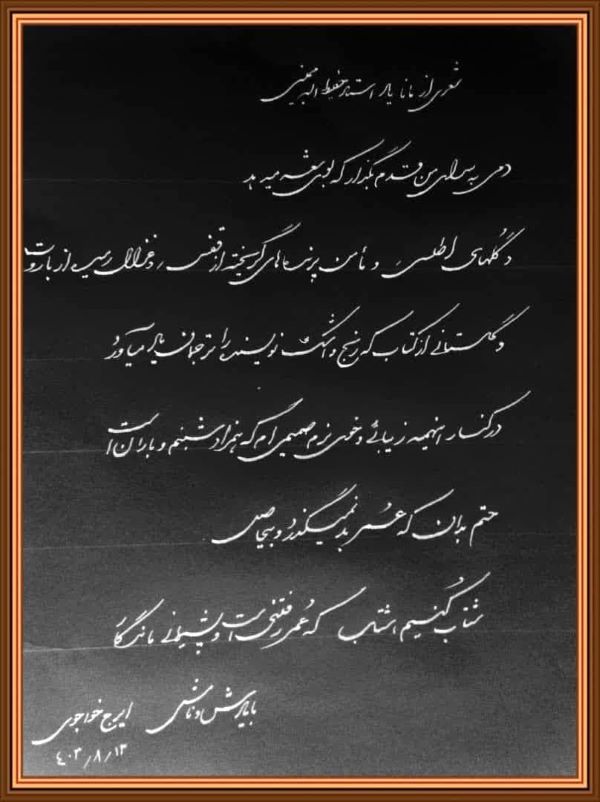 شعری از مانا یاد استاد حفیظ اله ممبینی
دمی به سرای من قدم بگذار که بوی بنفشه میدهد
و گلهای اطلسی و مأمن پرنده‌های گریخته از قفس و غزالان رمیده از باروت
و گلستانی از کتاب که رنج و اشک نویسنده را ترجمان یاد میآورد
در کنار اینهمه زیبائی و خوی نرم صمیمی ام که همزاد شبنم و باران است
حتم بدان که عمر بد نمیگذرد و بیحاصل
شتاب کنیم اشتاب که عمر رفتنی است و پشیمانی ماندگار
با پوزش و نیایش ایرج خواجوی
۴۰۳/۸/۱۳